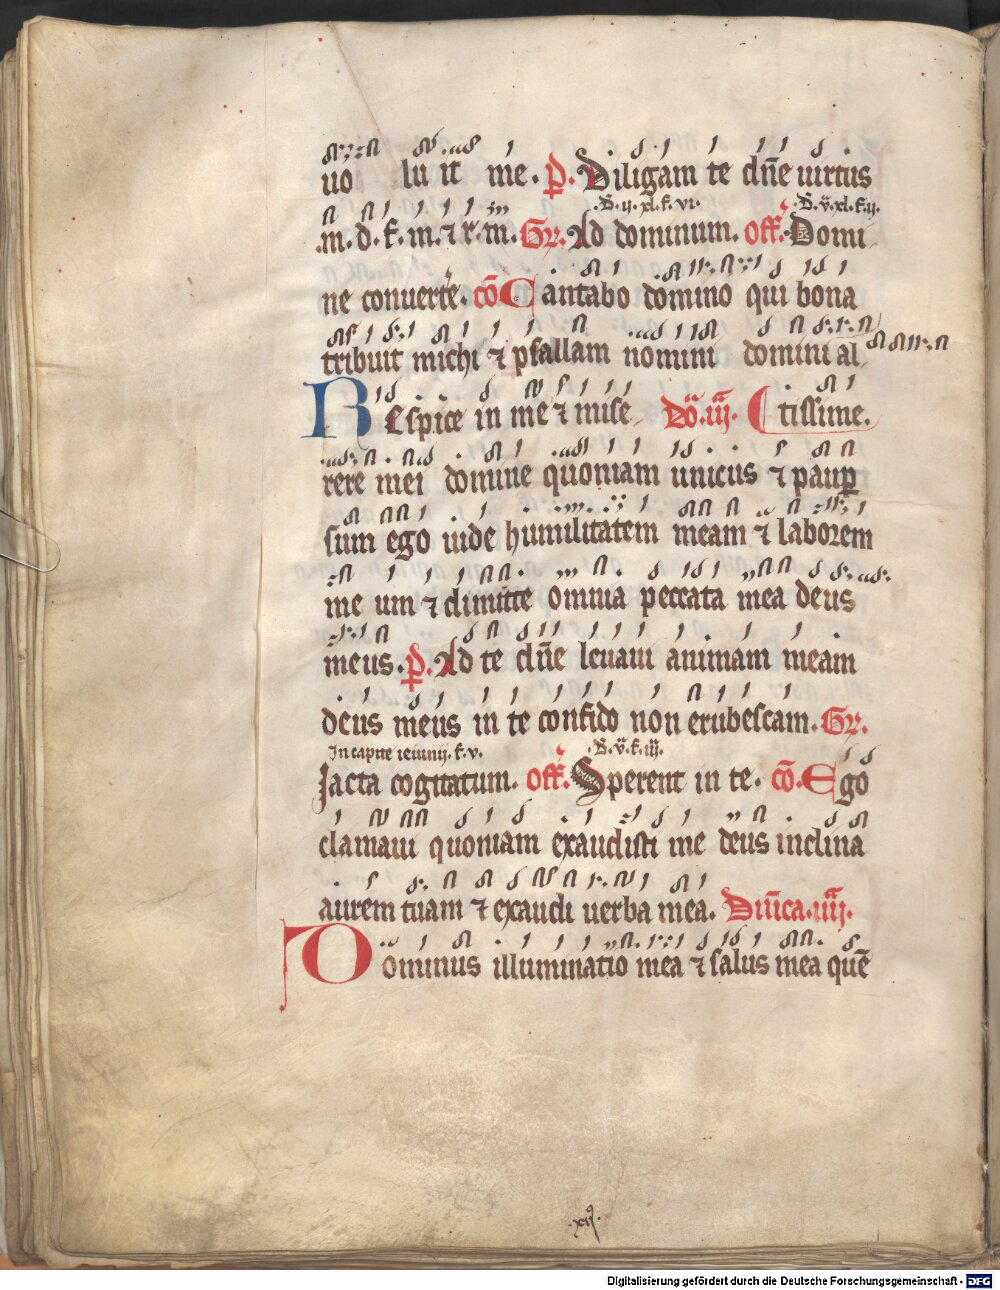 uo luit me. P. Diligam te dn̄e uirtus
.B.ij.xl.f.vi. .B.v̄.xl.f.ij.
.m.d.f.m. ⁊ r.m. Gr. Ad dominum. off. Domi
ne conuerte. cō Cantabo domino qui bona
tribuit michi ⁊ psallam nomini domini al
REspice in me ⁊ mise Dō.iij. tissime.
rere mei domine quoniam unicus ⁊ paup
sum ego uide humilitatem meam ⁊ laborem
me um ⁊ dimitte omnia peccata mea deus
meus. P. Ad te dn̄e leuaui animam meam
deus meus in te confido non erubescam. Gr.
In capite ieiunij. f.v. .B.v̄.f.iij.
Jacta cogitatum. off. Sperent in te. cō. Ego
clamaui quoniam exaudisti me deus inclina
aurem tuam ⁊ exaudi uerba mea. Dn̄ica.iiij.
Dominus illuminatio mea ⁊ salus mea quē
.xij⁹.
Digitalisierung gefördert durch die Deutsche Forschungsgemeinschaft - DFG